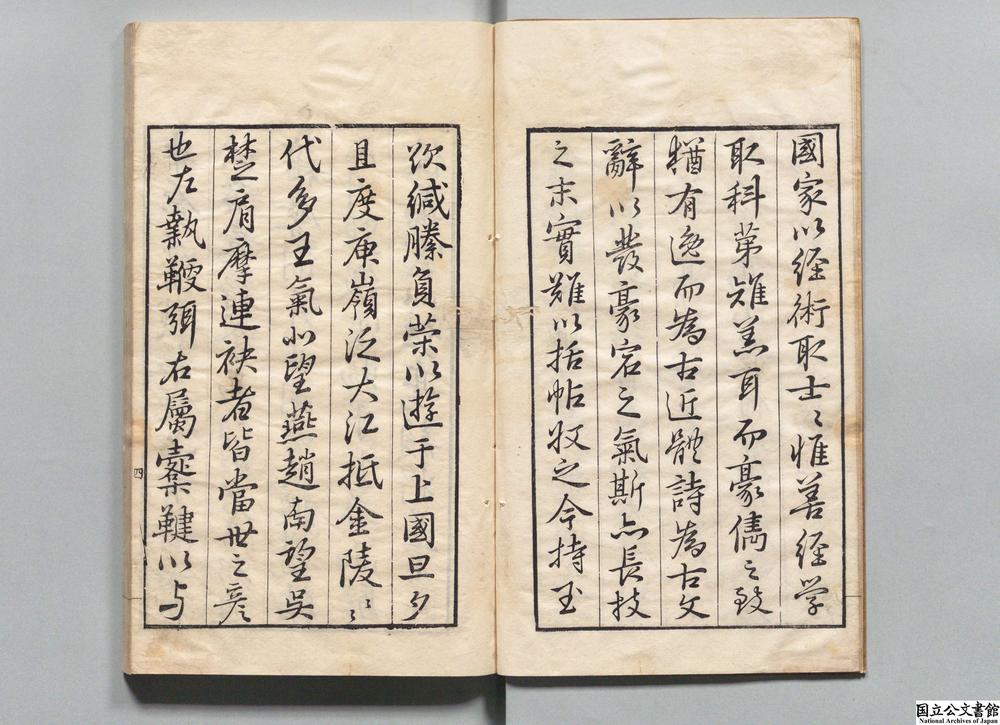 國家以経術取士〻惟善経学
取科第雖羔耳而豪儁之致
猶有逸而為古近體詩為古文
辭以發豪宕之氣斯亦長技
之末實難以括帖收之今持玉
欲緘縢負荣以遊于上國旦夕
且度庾嶺泛大江抵金陵〻〻
代多王氣北望燕趙南望吳
楚肩摩連袂者皆當世之彦
也左執鞭弭右屬櫜鞬以与
四
国立公文書館
National Archives of Japan